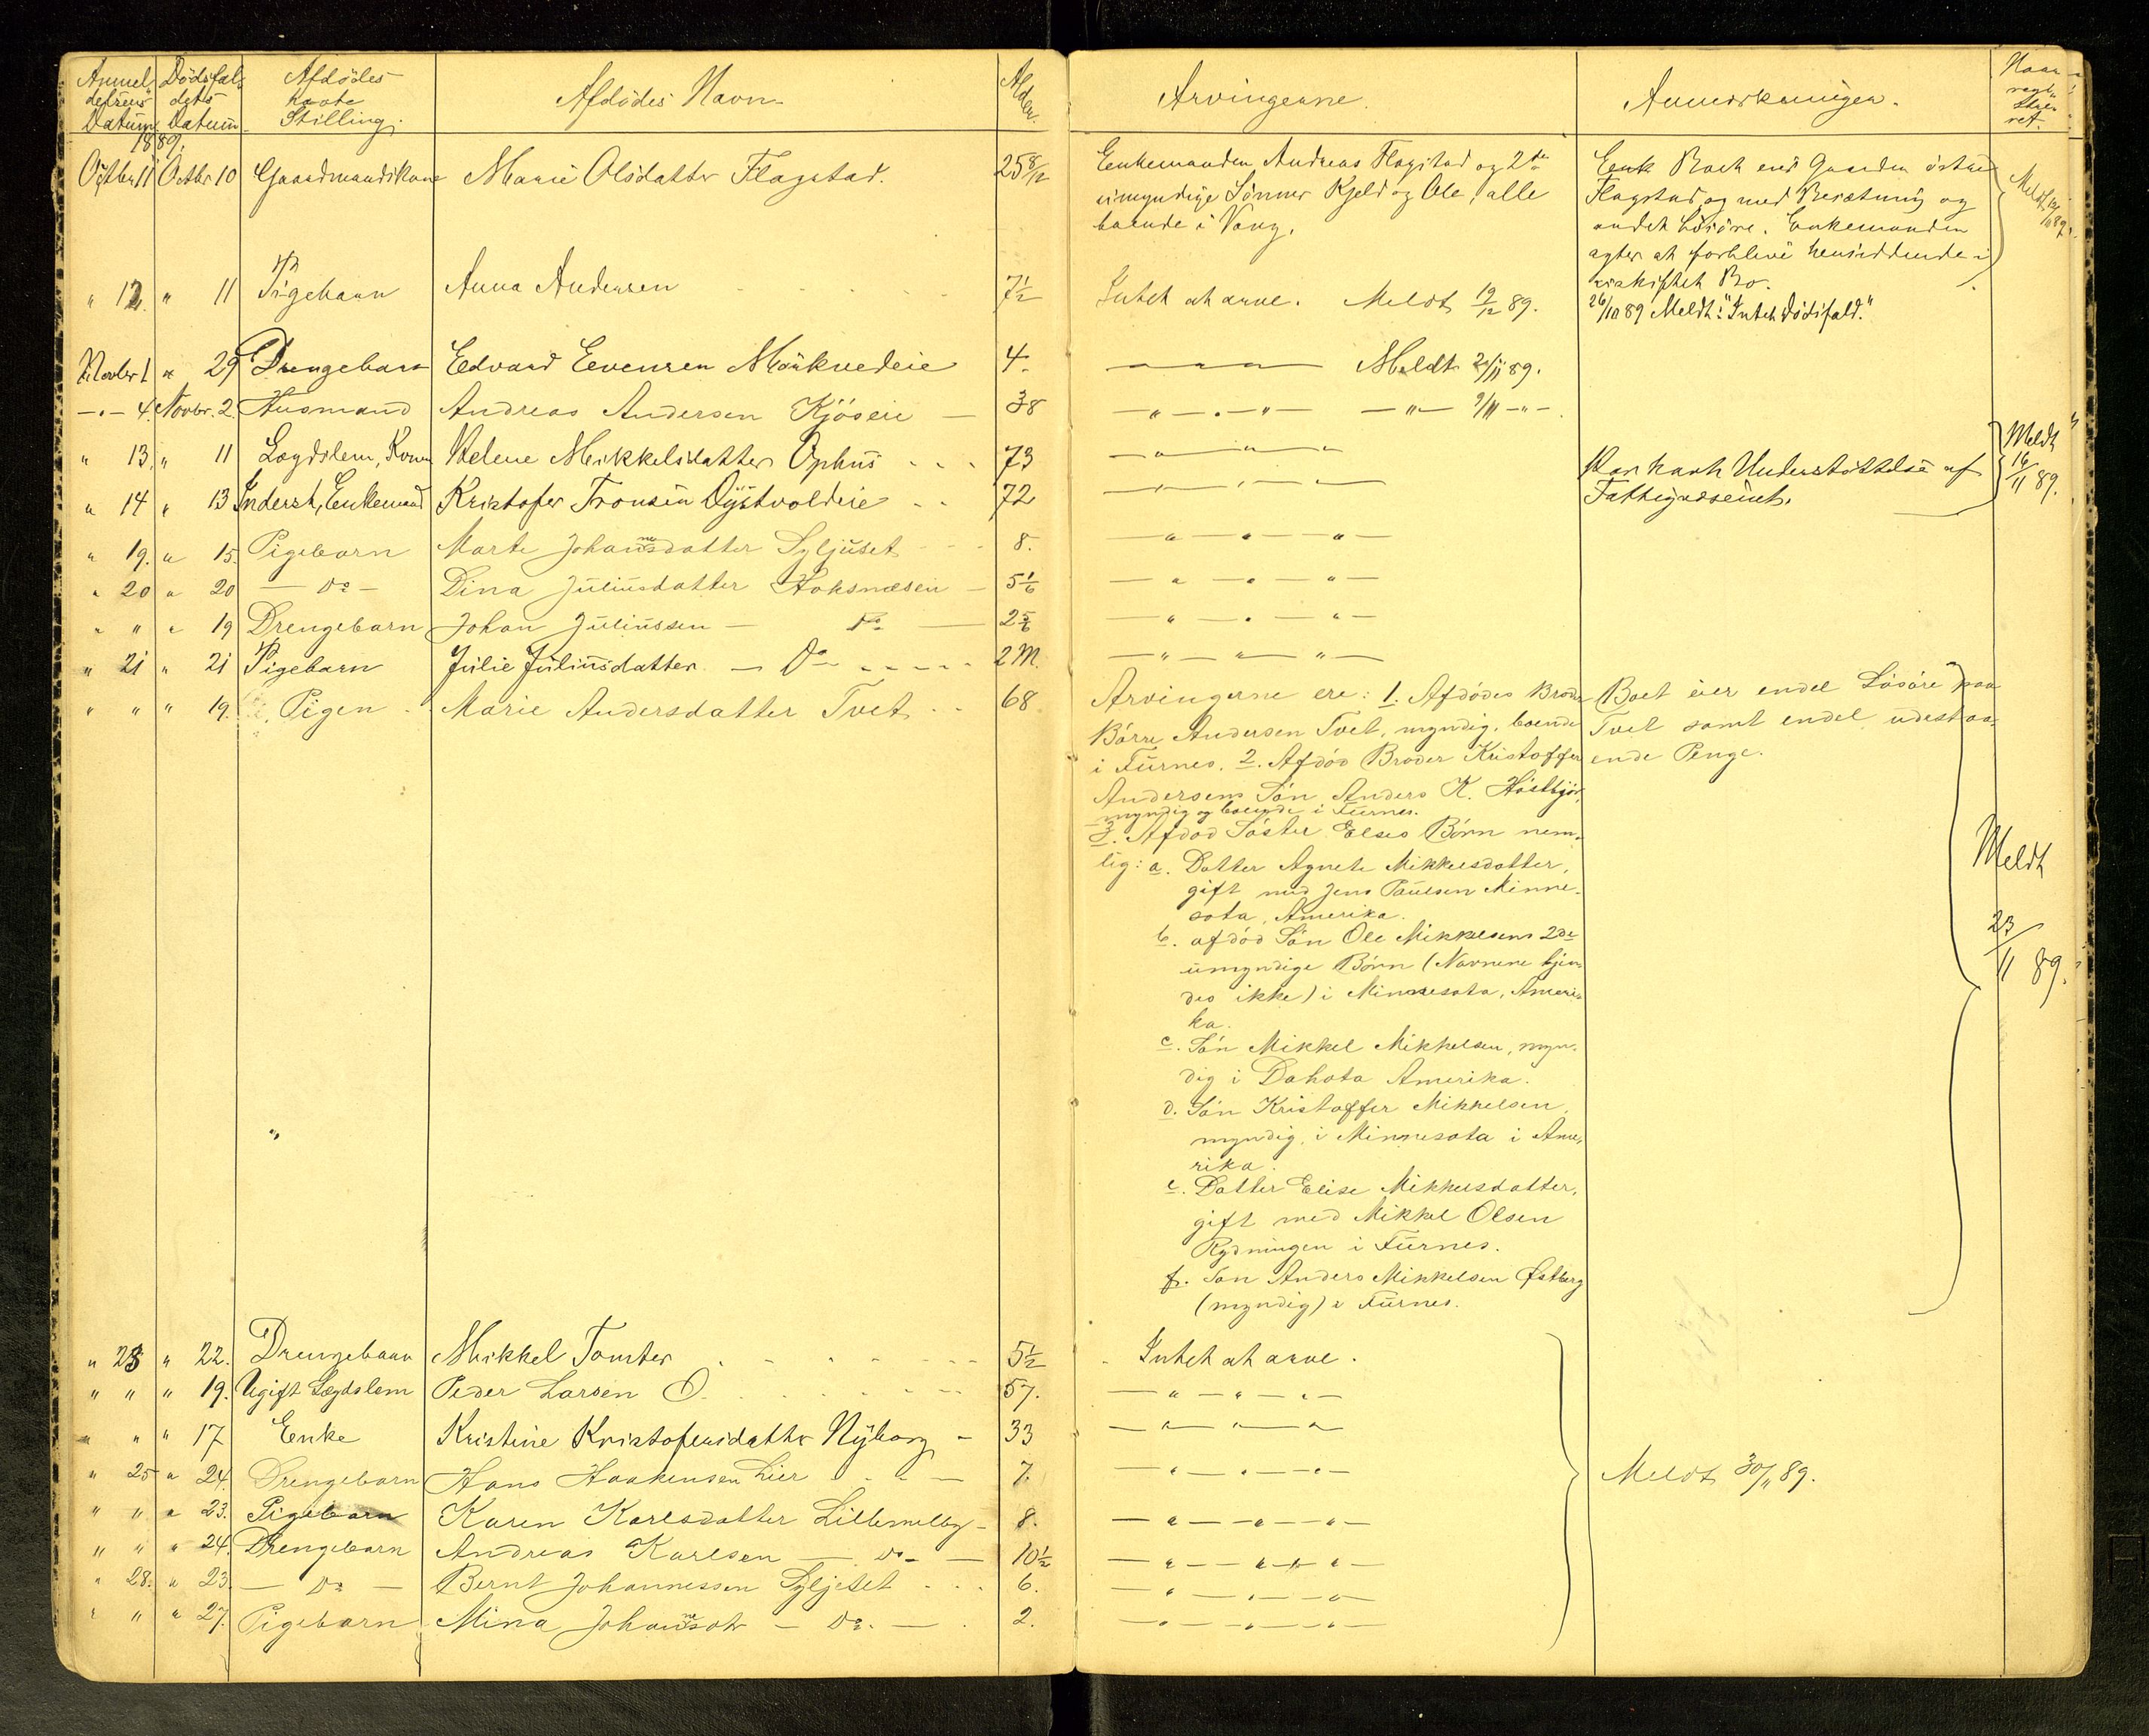 Anmel- Dødsfal- Afdødes Afdødes Navn. Alder. Arvingerne. Anmerkninger. Naar
delsens dets havte regi-
Datum Datum Stilling. stre-
ret.
1889.
Octbr 11 Octbr 10 Gaardmandskone Marie Olsdatter Flagstad. 25 8/12 Enkemanden Andreas Flagstad og 2de
umyndige Sønner Kjeld og Ole, alle
boende i Vang.
Gaarden østre
Flagstad, og med Besætning og
andet Løsøre. Enkemanden
agter at forblive hensiddende i
uskiftet Bo.
Meldt 89.
" 12. " 11 Pigebarn Anna Andersen 7 1/2 Intet at arve. Meldt 19/12 89. 26/10 89 Meldt: "Intet Dødsfald."
Novbr 1 " 29 Drengebarn Edvard Evensen 4. — " — Meldt 2/11 89.
— " — 4. Novbr. 2. Husmand Andreas Andersen Kjøseie — 38 — " — " — " — — " — 9/11 — " —.
" 13. " 11 Lægdslem, Kone Helene Mikkelsdatter Ophus 73 — " — " — " —
" 14 " 13 Inderst, Enkemand Kristofer Tronsen Dystvoldeie 72 — " — " — " — Har havt Understøttelse af
Fattigvæsenet.
Meldt
16/11 89.
" 19. " 15. Pigebarn Marte Johannesdatter Syljuset 8. — " — " — " —
" 20 " 20 — Do — Dina Juliusdatter Hoksnæsen — 5 1/6 — " — " — " —
" " " 19 Drengebarn Johan Juliussen — Do — 2 5/6 — " — " — " —
" 21 " 21 Pigebarn Julie Juliusdatter — Do 2 M. — " — " — " —
" " " 19. Pigen Marie Andersdatter Tvet 68 Arvingerne ere: 1. Afdødes Broder
Børre Andersen Tvet, myndig, boende
i Furnes. 2. Afdød Broder Kristoffer
Andersens Søn Anders K. Høstbjør,
myndig og boende i Furnes.
3. Afdød Søster Elses Børn nem-
lig: a. Datter Agnete Mikkelsdatter,
gift med Jens Paulsen Minne-
sota, Amerika.
b. afdød Søn Ole Mikkelsens 2de
umyndige Børn (Navnene kjen-
des ikke) i Minnesota, Ameri-
ka.
c. Søn Mikkel Mikkelsen, myn-
dig i Dakota Amerika.
d. Søn Kristoffer Mikkelsen,
myndig, i Minnesota i Ame-
rika.
e. Datter Elise Mikkelsdatter,
gift med Mikkel Olsen
Rydningen i Furnes.
f. Søn Anders Mikkelsen Østberg
(myndig) i Furnes.
Boet eier endel Løsøre paa
Tvet samt endel udestaa-
ende Penge.
Meldt
23/11 89.
" 23 " 22. Drengebarn Mikkel Tomter 5 1/2 Intet at arve.
" " " 19. Ugift Lægdslem Peder Larsen O. 57. — " — " — " —
" " " 17 Enke Kristine Kristofersdatter Nyborg — 33 — " — " — " —
" 25 " 24. Drengebarn Hans Haakensen Lier 7. — " — " — " — Meldt 30/11 89.
" " " 23. Pigebarn Karen Karlsdatter Lillemelby — 8. — " — " — " —
" " " 24. Drengebarn Andreas Karlsen — Do — 10 1/2 — " — " — " —
" 28. " 23. — Do — Bernt Johannessen Syljeset 6. — " — " — " —
" " " 27. Pigebarn Mina Johannesdtr — Do. — 2. — " — " — " —